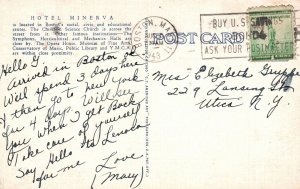 HOTEL MINERVA
is located in Boston's social, civic and educational
center. The Christian Science Church is across the
street from it. Other famous institutions are
Symphony, Horticultural and Mechanics Halls,
the Opera House, Museum of Fine Arts,
Conservatory of Music, Public Library and Y.M.C.A.
are within close proximity.
BOSTON, MA
1945
BUY U.S. SAVINGS
ASK YOUR POSTMASTER
POST CARD
Hello G.
Arrived in Boston
We'll spend 3 days here
then go to New York
for 4 days. Will see
you when I get Back
Take care of yourself
Say Hello to Lenora
for me
Love
(Mary)
Miss Elizabeth Gruppe
229 Lansing St
Utica N.Y.